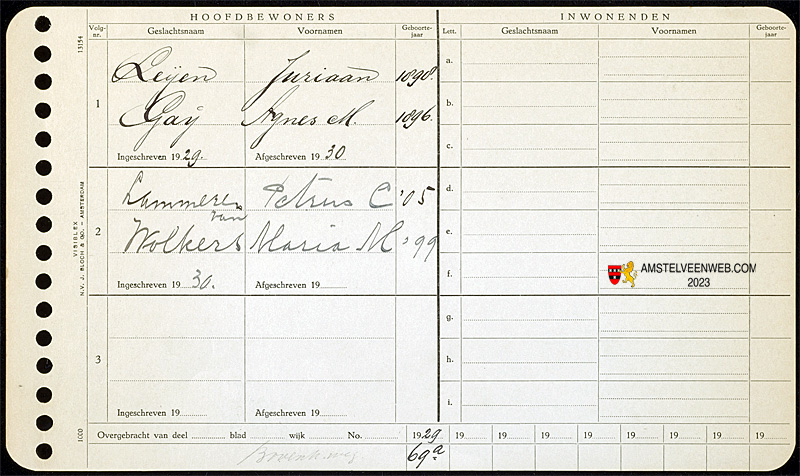 HOOFDBEWONERS
INWONENDEN
Volg-nr. Geslachtsnaam Voornamen Geboorte-jaar Lett. Geslachtsnaam Voornamen Geboorte-jaar
13154
1 Leijen Juriaan 1898.
Gaij Agnes M. 1896.
Ingeschreven 1929. Afgeschreven 1930
a.
b.
c.
2 Lammeren Petrus C '05
van
Wolkers Maria M '99
Ingeschreven 1930. Afgeschreven 19
d.
e.
f.
3
Ingeschreven 19 Afgeschreven 19
g.
h.
i.
VISIBLEX
N.V. J. BLOCH & CO. - AMSTERDAM
1000
AMSTELVEENWEB.COM
2023
Overgebracht van deel blad wijk No. 1929 19 19 19 19 19 19 19 19
69a